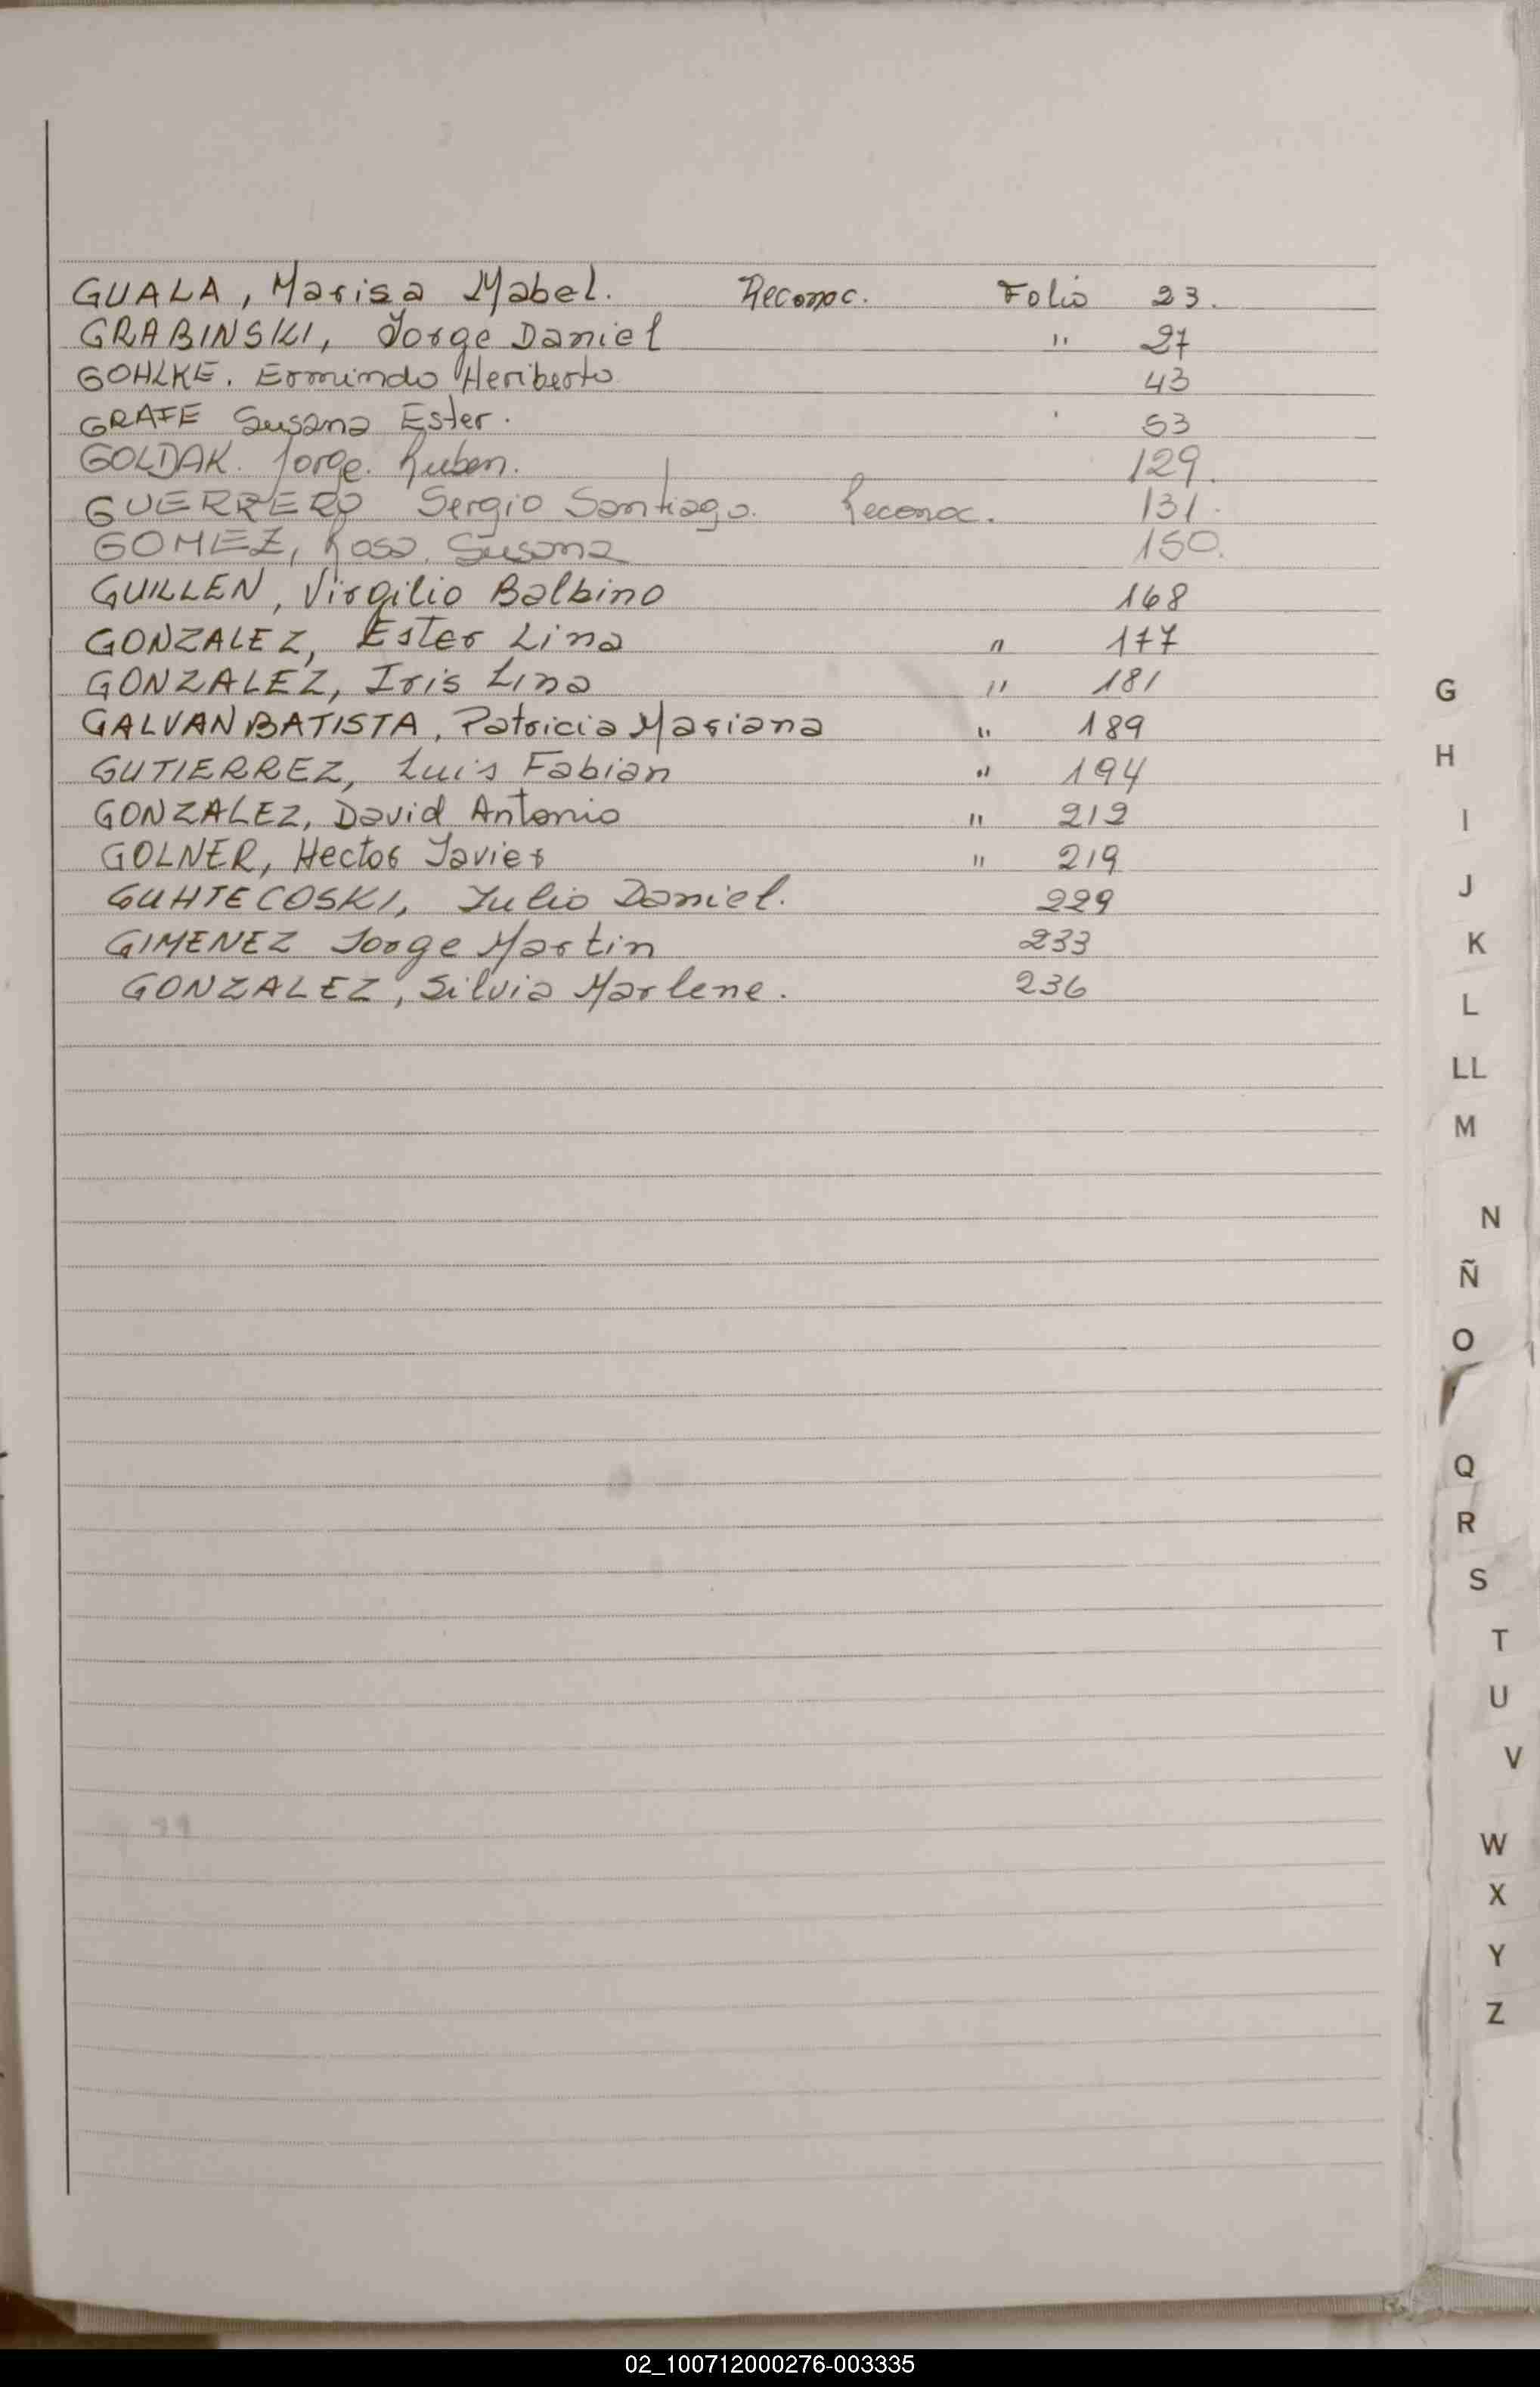 GUALA, Marisa Mabel. Reconoc. Folio 23.
GRABINSKI, Jorge Daniel " 27
GOHLKE. Ermindo Heriberto 43
GRAFE Susana Ester. ' 53
GOLDAK. Jorge. Ruben. 129.
GUERRERO Sergio Santiago. Reconoc. 131.
GOMEZ, Rosa. Susana 150.
GUILLEN, Virgilio Balbino 168
GONZALEZ, Ester Lina " 177
GONZALEZ, Iris Lina " 181
GALVAN BATISTA, Patricia Mariana " 189
GUTIERREZ, Luis Fabian " 194
GONZALEZ, David Antonio " 212
GOLNER, Hector Javier " 219
GUHTECOSKI, Julio Daniel. 229
GIMENEZ Jorge Martin 233
GONZALEZ, Silvia Marlene. 236
G
H
I
J
K
L
LL
M
N
Ñ
O
Q
R
S
T
U
V
W
X
Y
Z
02_100712000276-003335